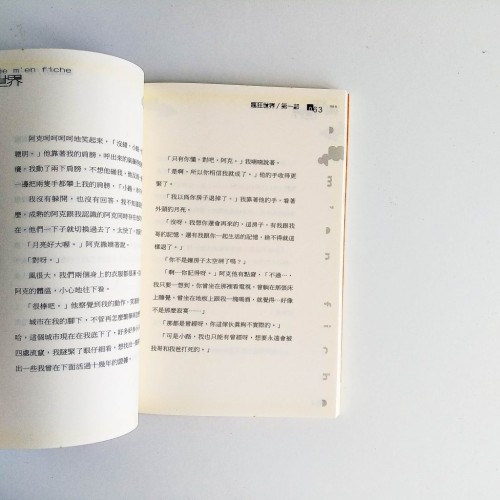 e m'en fiche
世界
阿克呵呵呵呵地笑起來,「沒錯,小
聰明。」他靠著我的肩膀,呼出來的
癢,我動了兩下肩膀,不想他離我
一邊把兩隻手都攀上我的肩膀,「小
我沒有躲開,也沒有回答,我不
麼,成熟的阿克跟我認識的阿克同時存在
在,他們一下子就切換過去了,太快了
「月亮好大喔。」阿克喃喃著說。
「對呀。」
風很大,我們兩個身上的衣服都
阿克的體溫,小心地往下看。
「很棒吧。」他察覺到我的動作,
城市在我的腳下,不管再怎麼
哈,這個城市現在在我底下了,好多
四處流竄,我瞇緊了眼仔細看,想找
出一些我曾在下面活過十幾年的證據。
瘋狂世界/第一部
63
「只有你懂,對吧,阿克。」我喃喃說著。
「是啊,所以你相信我就成了。」他的手收得更
緊了。
「我以為你房子退掉了。」我靠著他的手,看著
外頭的月亮。
「沒呀,我想你還會再來的,這房子,有我跟我
哥的記憶,還有我跟你一起生活的記憶,捨不得就這
樣退了。」
「你不是嫌房子太空洞了嗎?」
「啊…你記得呀。」阿克他有點窘,「不過…,
我只要一想到,你曾坐在那抱著電視,曾躺在那張床
上睡覺,曾坐在地板上跟我一塊喝酒,就覺得…好像
不是那麼寂寞……」
「那都是曾經呀,你這樣執著與不實際的。」
「可是小路,我也只能有曾經呀,想要永遠會被
我哥和我爸打死的。」